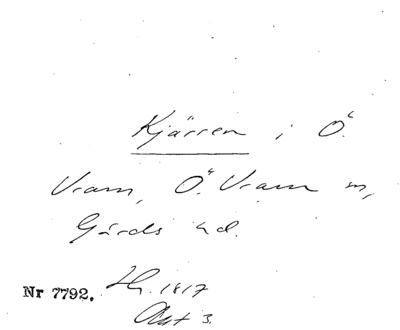 Kjärren i Ö.
Vram, Ö. Vram sn,
Gärds hd.
Nr 7792. Hy. 1817
Akt 3.